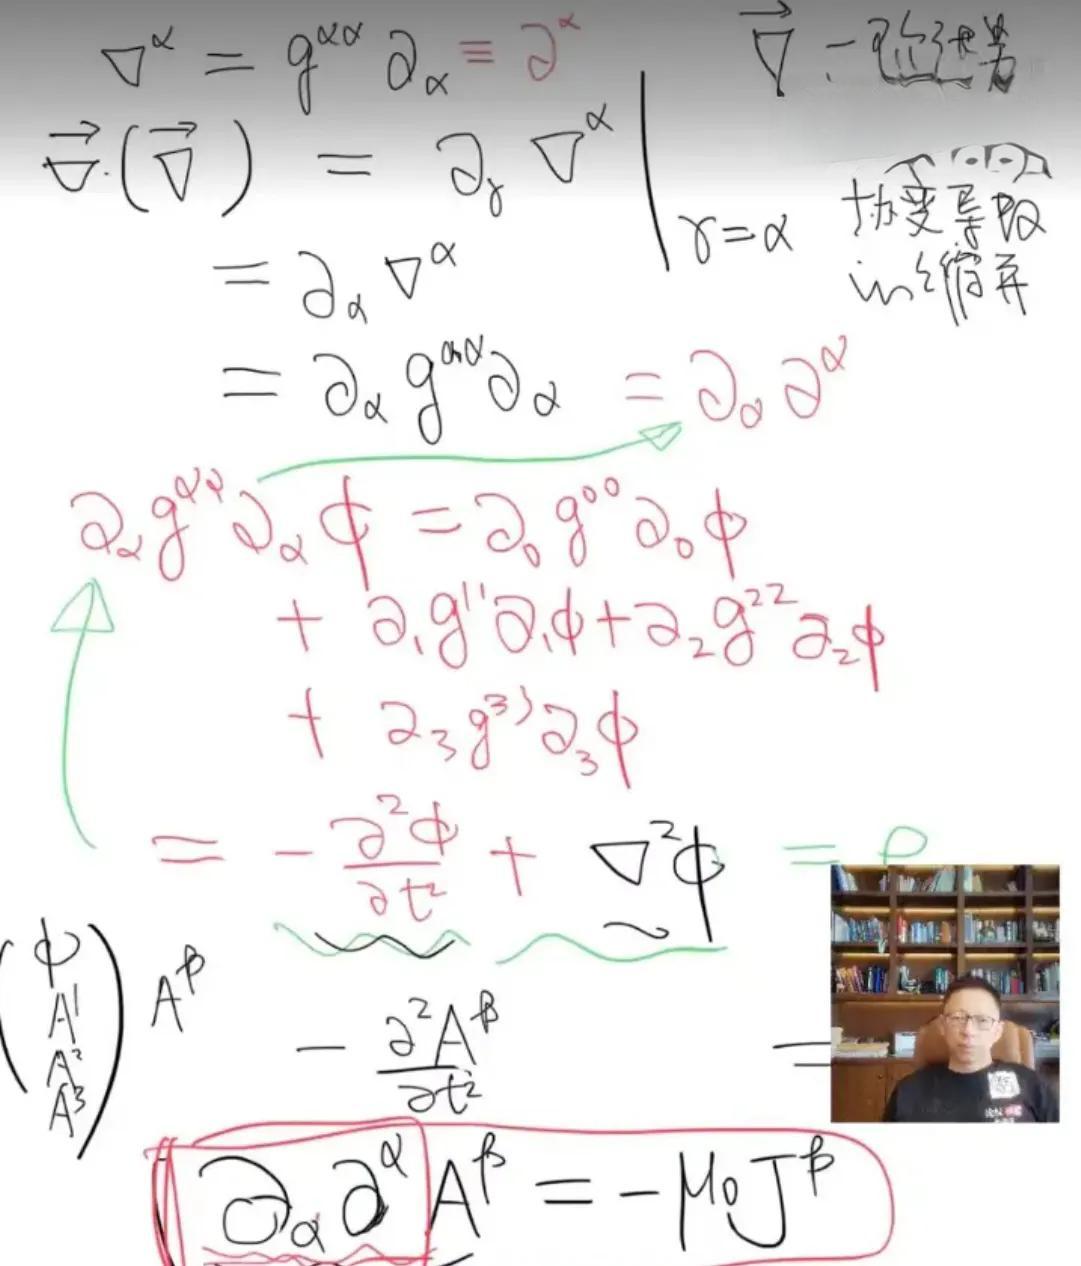 ∇^α = g^{αα} ∂_α ≡ ∂^α
∇⃗ -
∇⃗·(∇⃗) = ∂_γ ∇^α | γ=α
协变导数
= ∂_α ∇^α
in缩并
= ∂_α g^{αα} ∂_α = ∂_α ∂^α
∂_α g^{αα} ∂_α ϕ = ∂_0 g^{00} ∂_0 ϕ
+ ∂_1 g^{11} ∂_1 ϕ + ∂_2 g^{22} ∂_2 ϕ
+ ∂_3 g^{33} ∂_3 ϕ
= - ∂²ϕ/∂t² + ∇²ϕ =
(ϕ A^1 A^2 A^3) A^β
- ∂²A^β/∂t² =
∂_α ∂^α A^β = -μ_0 J^β